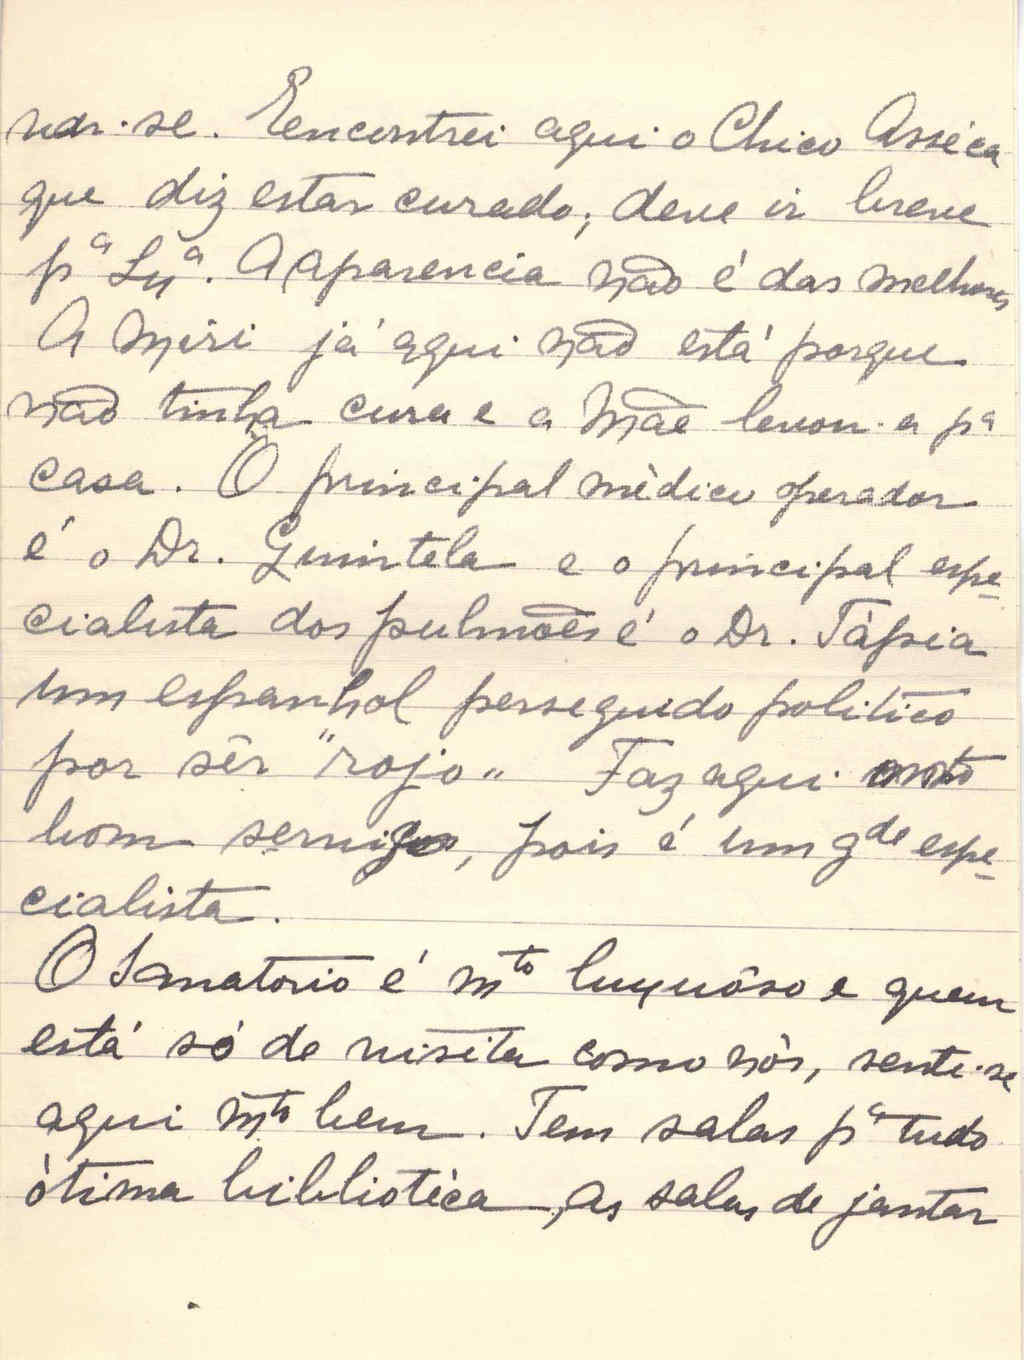 var-se. Rencontrei aqui o Chico Asséca
que diz estar curado, deve ir breve
pª Lxª. A aparencia não é das melhores
A Miri já aqui não está porque
não tinha cura e a Mãe levou-a pª
casa. O principal médico operador
é o Dr. Quintela e o principal espe-
cialista dos pulmões é o Dr. Tápia
um espanhol perseguido politico
por sêr "rojo" Faz aqui mto
bom serviço, pois é um gde espe-
cialista.
O Sanatorio é mto luxuôso e quem
está só de visita como nós, sente-se
aqui mto bem. Tem salas pª tudo
ótima bibliotéca, as salas de jantar